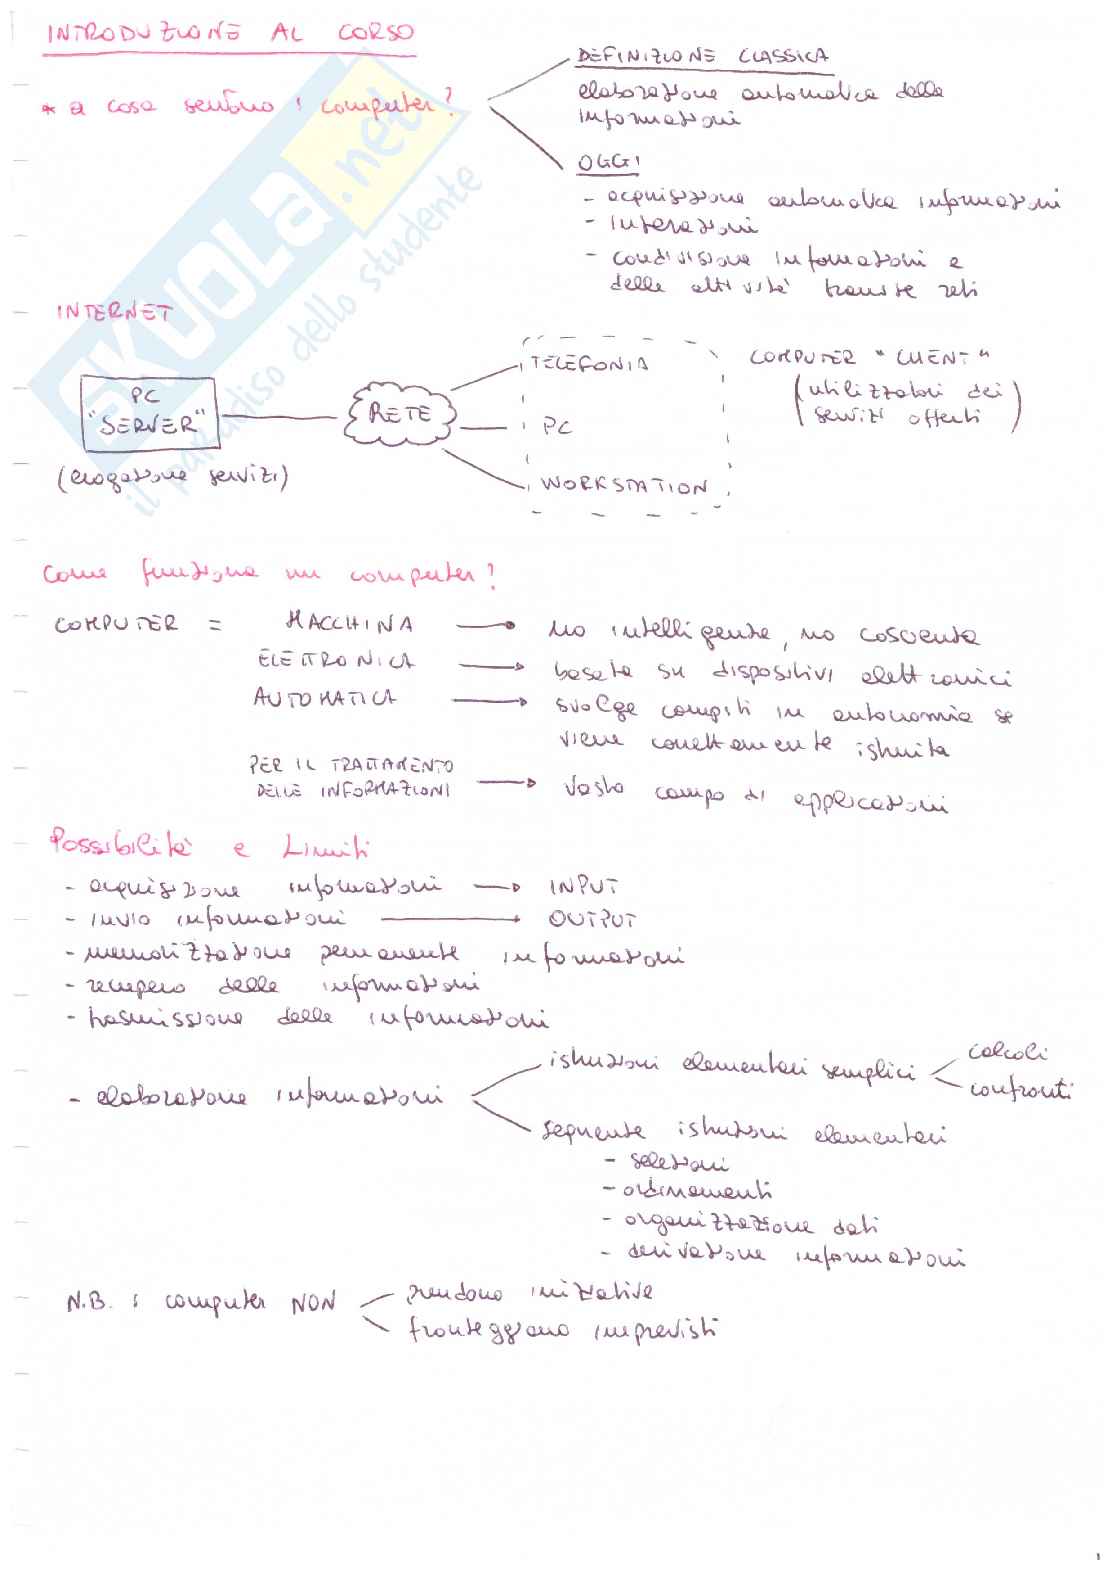 INTRODUZIONE AL CORSO
* a cosa servono i computer?
DEFINIZIONE CLASSICA
elaborazione automatica delle
informazioni
OGGI
- acquisizione automatica informazioni
- interazioni
- condivisione informazioni e
delle attività tramite reti
INTERNET
PC
"SERVER"
(erogazione servizi)
RETE
TELEFONIA
PC
WORKSTATION
COMPUTER "CLIENT"
(utilizzatori dei
servizi offerti)
Come funziona un computer?
COMPUTER = MACCHINA → no intelligente, no coscienza
ELETTRONICA → basata su dispositivi elettronici
AUTOMATICA → svolge compiti in autonomia se
viene correttamente istruita
PER IL TRATTAMENTO
DELLE INFORMAZIONI → vasto campo di applicazioni
Possibilità e Limiti
- acquisizione informazioni → INPUT
- invio informazioni → OUTPUT
- memorizzazione permanente informazioni
- recupero delle informazioni
- trasmissione delle informazioni
- elaborazione informazioni
istruzioni elementari semplici
calcoli
confronti
sequenze istruzioni elementari
- selezioni
- ordinamenti
- organizzazione dati
- derivazione informazioni
N.B. i computer NON
prendono iniziative
fronteggiano imprevisti
SKUOLA.net
il paradiso dello studente
1